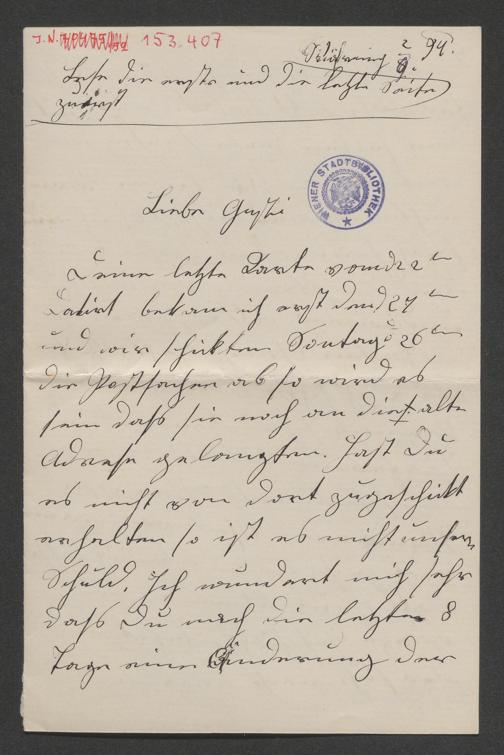 J.N. 153.407
Währing 2/9. 94.
Lese die erste und die letzte Seite
zuerst
WIENER STADTBIBLIOTHEK
Liebe Gusti
Deine letzte Karte vom 22ten
Datirt bekam ich erst den 27ten
und wir schickten Sontags 26ten
die Postsachen ab so wird es
sein dass sie noch an die alte
Adresse gelangten. Hast Du
es nicht von dort zugeschickt
erhalten so ist es nicht unsere
Schuld. Ich wundert mich sehr
dass Du nach die letzte 8
Tage eine Änderung der